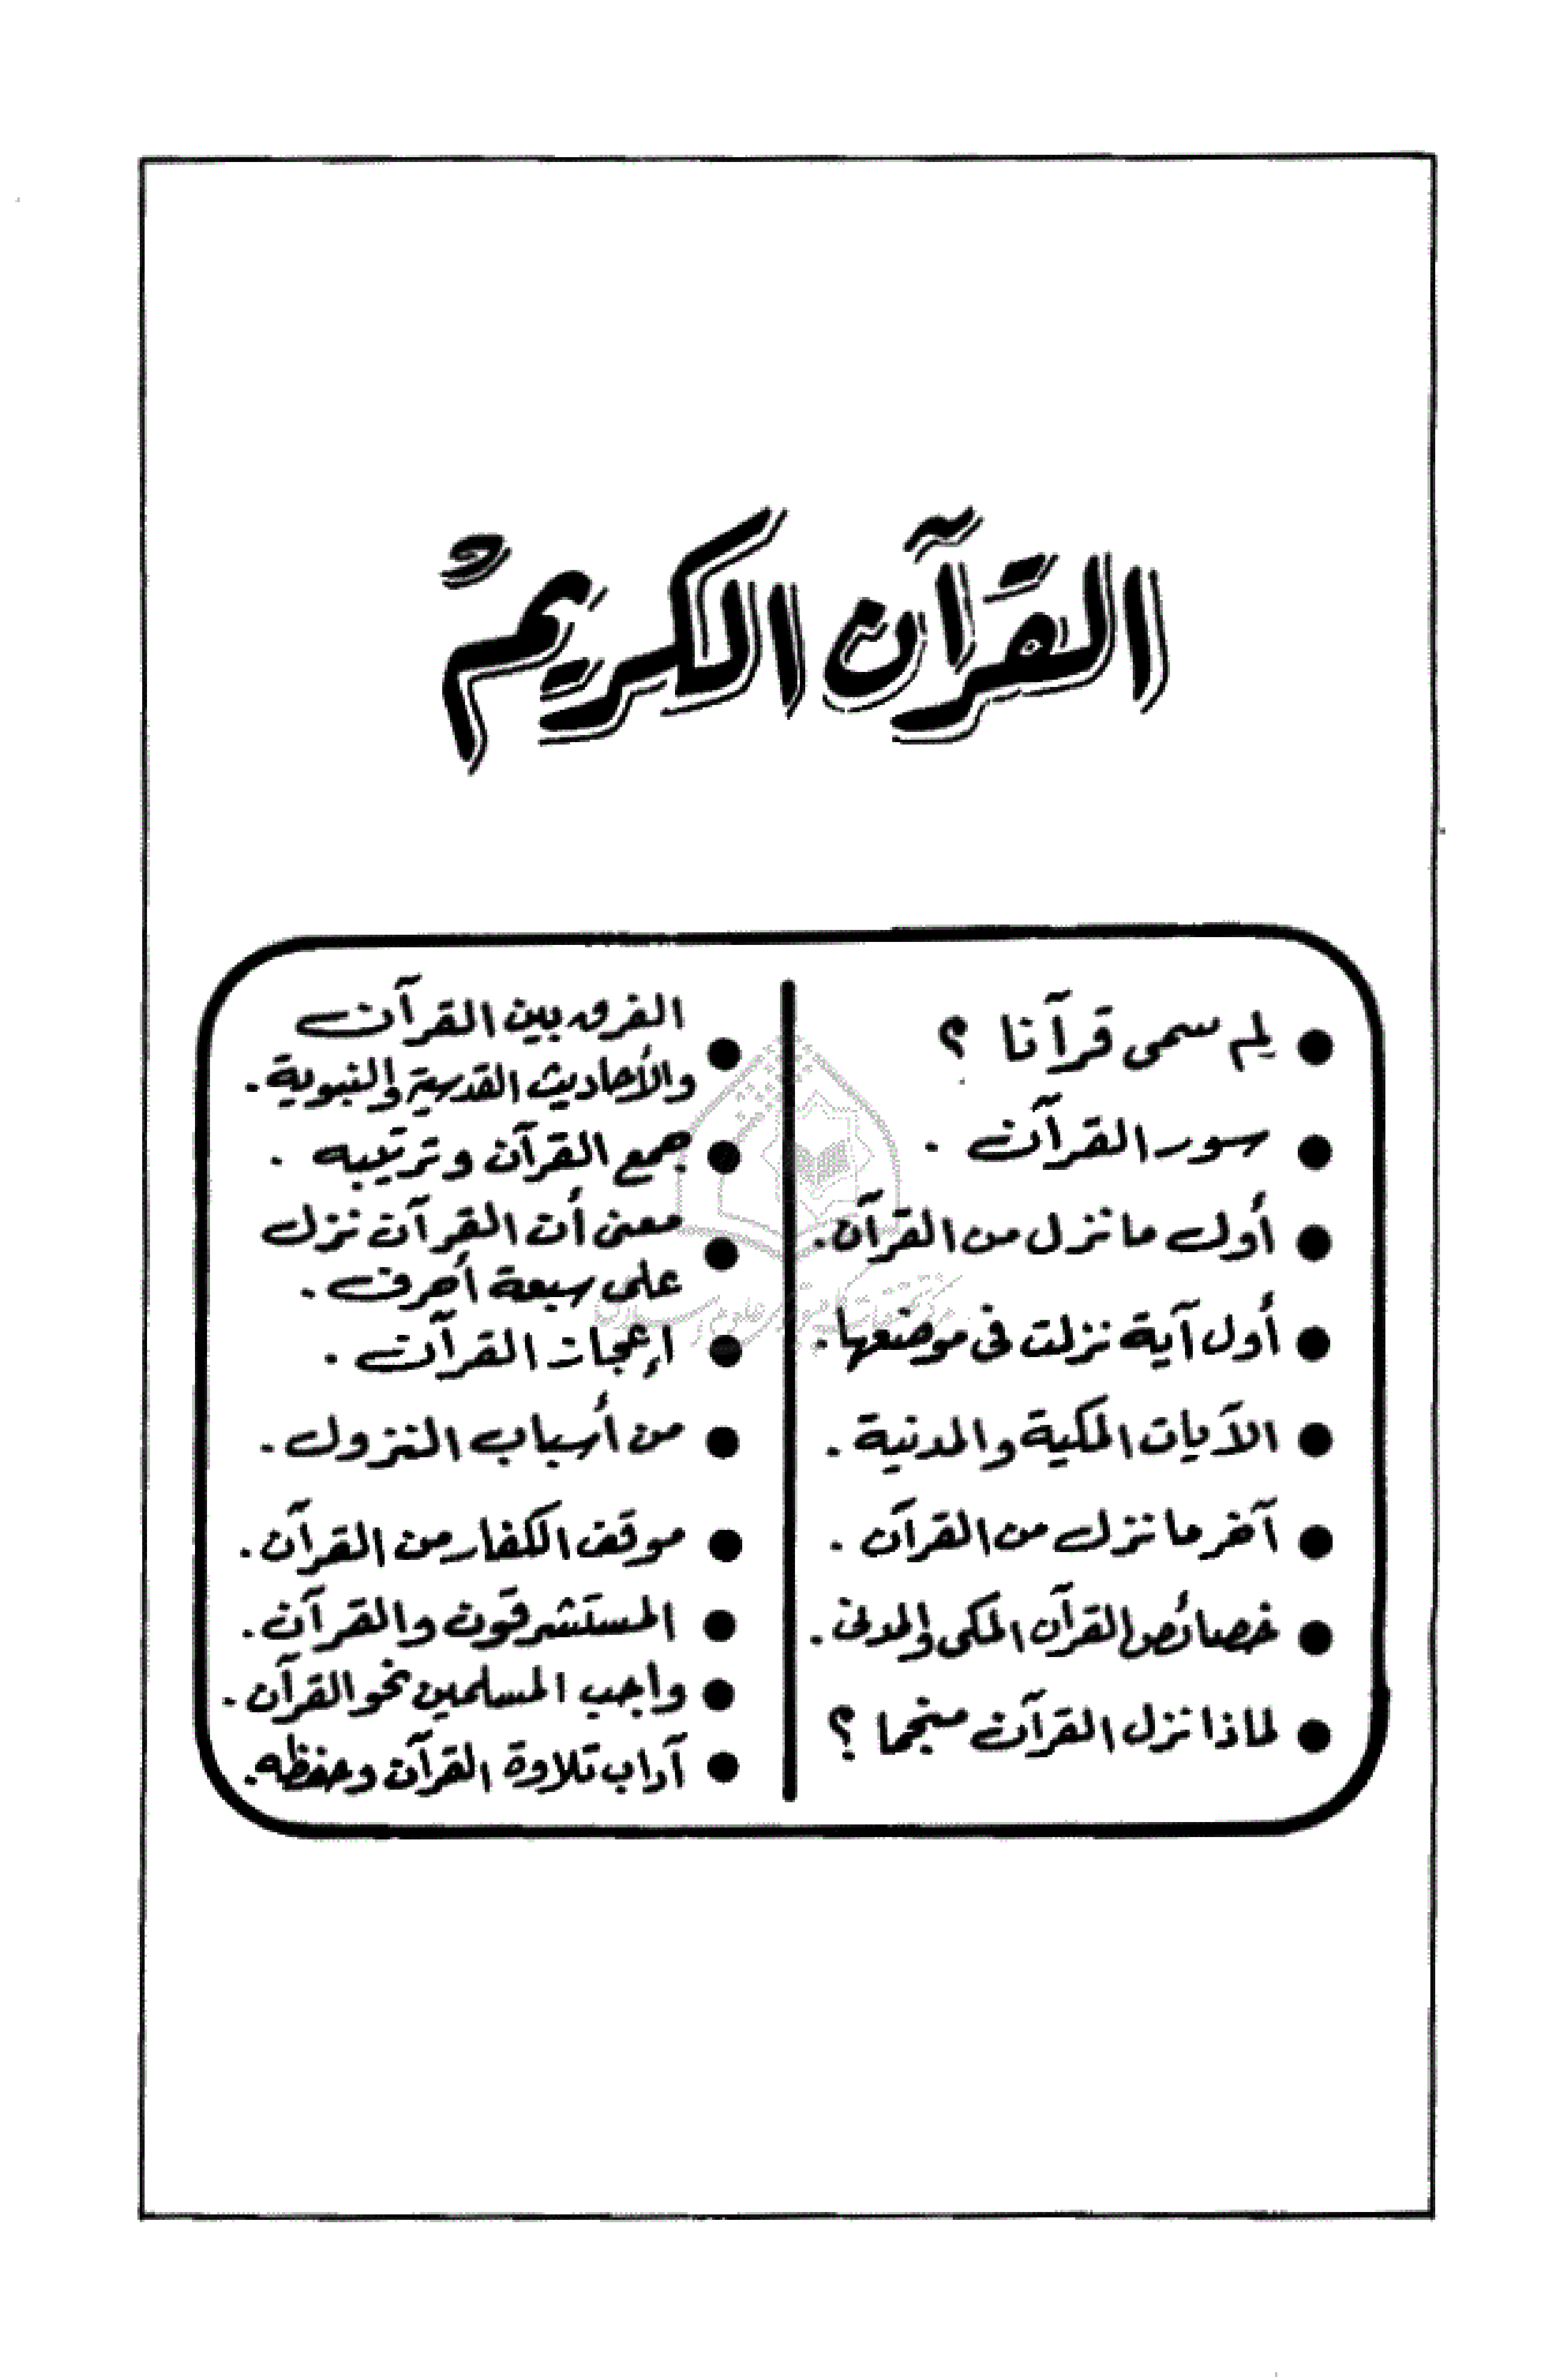 القرآن الكريم
● لم سمى قرآنا ؟
● سور القرآن .
● أول ما نزل من القرآن .
● أول آية نزلت فى موضعها .
● الآيات المكية والمدنية .
● آخر ما نزل من القرآن .
● خصائص القرآن المكى والمدنى .
● لماذا نزل القرآن منجما ؟
● الفرق بين القرآن
والأحاديث القدسية والنبوية .
● جمع القرآن وترتيبه .
● معنى أن القرآن نزل
على سبعة أحرف .
● إعجاز القرآن .
● من أسباب النزول .
● موقف الكفار من القرآن .
● المستشرقون والقرآن .
● واجب المسلمين نحو القرآن .
● آداب تلاوة القرآن وحفظه .